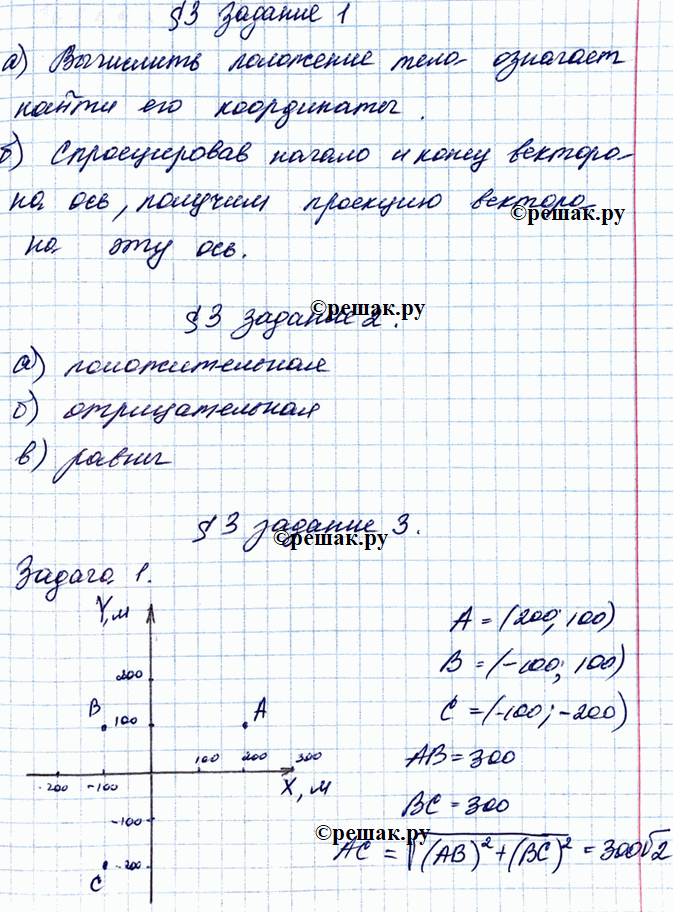 §3 Задание 1
а) Вычислить положение тела означает
найти его координаты.
б) Спроецировав начало и конец вектора
на ось, получим проекцию вектора
©решак.ру
на эту ось.
©решак.ру
§3 задание 2.
а) положительная
б) отрицательная
в) равны
§3 задание 3.
©решак.ру
Задача 1.
Y,м
A = (200; 100)
200
B = (-100; 100)
B
100
A
C = (-100; -200)
100 200 300
AB = 300
-200 -100
X, м
BC = 300
-100
©решак.ру
AC = √(AB)²+(BC)² = 300√2
-200
C